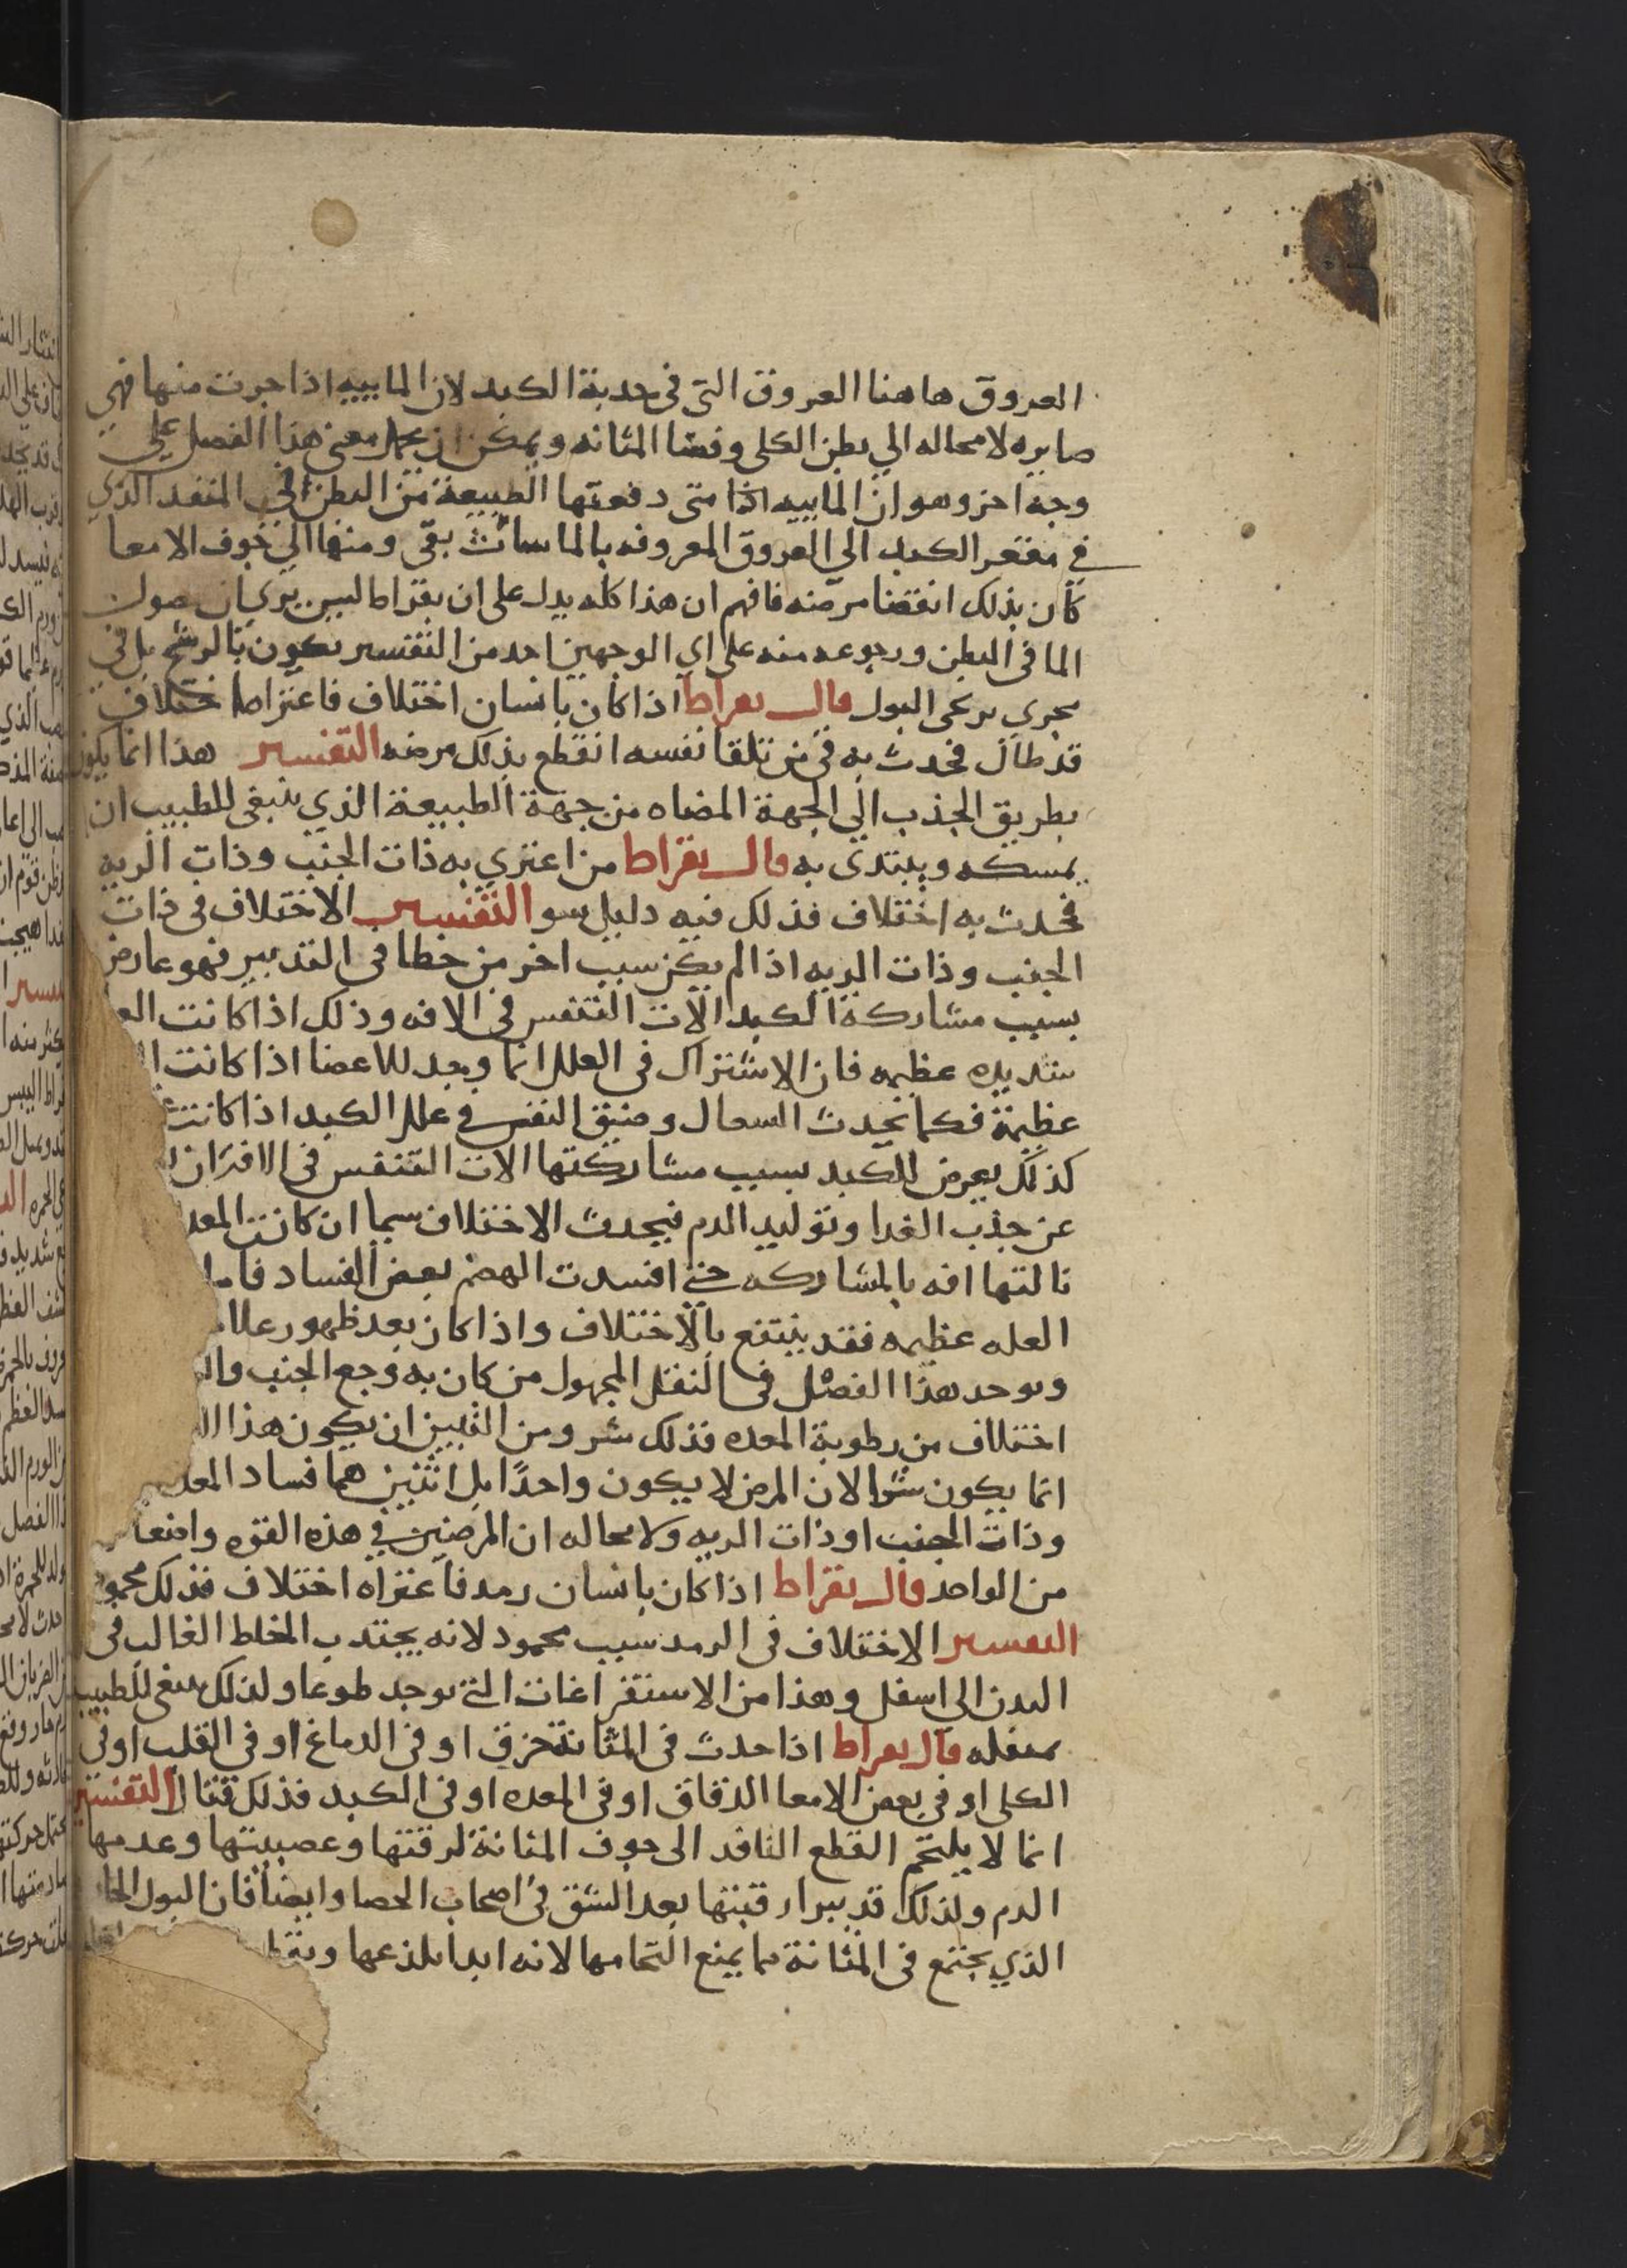 العروق هاهنا العروق التي في حدبة الكبد لان الماييه اذا جرت منها فهي
صايره لا محاله الي بطن الكلي وفضا المثانه ويمكن ان يحمل معني هذا الفصل علي
وجه اخر وهو ان الماييه اذا متي دفعتها الطبيعة من البطن الي المنفد الذي
في مقعر الكبد الي العروق المعروفه بالماساريقي ومنها الي جوف الامعا
كان بذلك انقضا مرضه فافهم ان هذا كله يدل علي ان بقراط ليس يري ان حصول
الما في البطن ورجوعه منه علي اي الوجهين احد من التفسير يكون بالرشح بل في
مجري قال بقراط اذا كان بانسان اختلاف فاعتراه اختلاف
قد طال فحدث به قي من تلقا نفسه انقطع بذلك مرضه التفسير هذا انما يكون
بطريق الجذب الي الجهة المضاه من جهة الطبيعة الذي ينبغي للطبيب ان
يمسكه ويبتدي به قال بقراط من اعتري به ذات الجنب وذات الريه
فحدث به اختلاف فذلك فيه دليل سو التفسير الاختلاف في ذات
الجنب وذات الريه اذا لم يكن سبب اخر من خطا في التدبير فهو عارض
بسبب مشاركة الكبد الات التنفس في الافه وذلك اذا كانت
شديده عظيمه فان الاشتراك في العلل انما وجد للاعضا اذا كانت
عظيمة فكما يحدث السعال وضيق النفس في علل الكبد اذا كانت
كذلك يعرض للكبد بسبب مشاركتها الات التنفس في
عن جذب الغدا وتوليد الدم فيحدث الاختلاف سيما ان كانت المعد
نالتها افه بالمشاركه حتي افسدت الهضم بعض الفساد فاما
العله عظيمه فقد ينتفع بالاختلاف واذا كان بعد ظهور
ويوحد هذا الفصل في النقل المجهول من كان به وجع الجنب
اختلاف من رطوبة المعده فذلك شر ومن البين ان يكون هذا
انما يكون شرا لان المرض لا يكون واحدًا بل اثنين هما فساد المعد
وذات الجنب او ذات الريه ولا محاله ان المرضين في هذه القوه
من الواحد قال بقراط اذا كان بانسان رمد فاعتراه اختلاف فذلك محمود
التفسير الاختلاف في الرمد سبب محمود لانه يجتدب الخلط الغالب في
البدن الي اسفل وهذا من الاستفراغات التي توجد طوعا ولذلك ينبغي للطبيب
قال بقراط اذا حدث في المثانة خرق او في الدماغ او في القلب او في
الكلي او في بعض الامعا الدقاق او في المعده او في الكبد فذلك قتال التفسير
انما لا يلتحم القطع النافد الي جوف المثانة لرقتها وعصبيتها وعدمها
الدم ولذلك قد يبرا رقبتها بعد الشق في اصحاب الحصا وايضًا فان البول
الذي يجتمع في المثانة مما يمنع التحامها لانه ابدا يلذعها